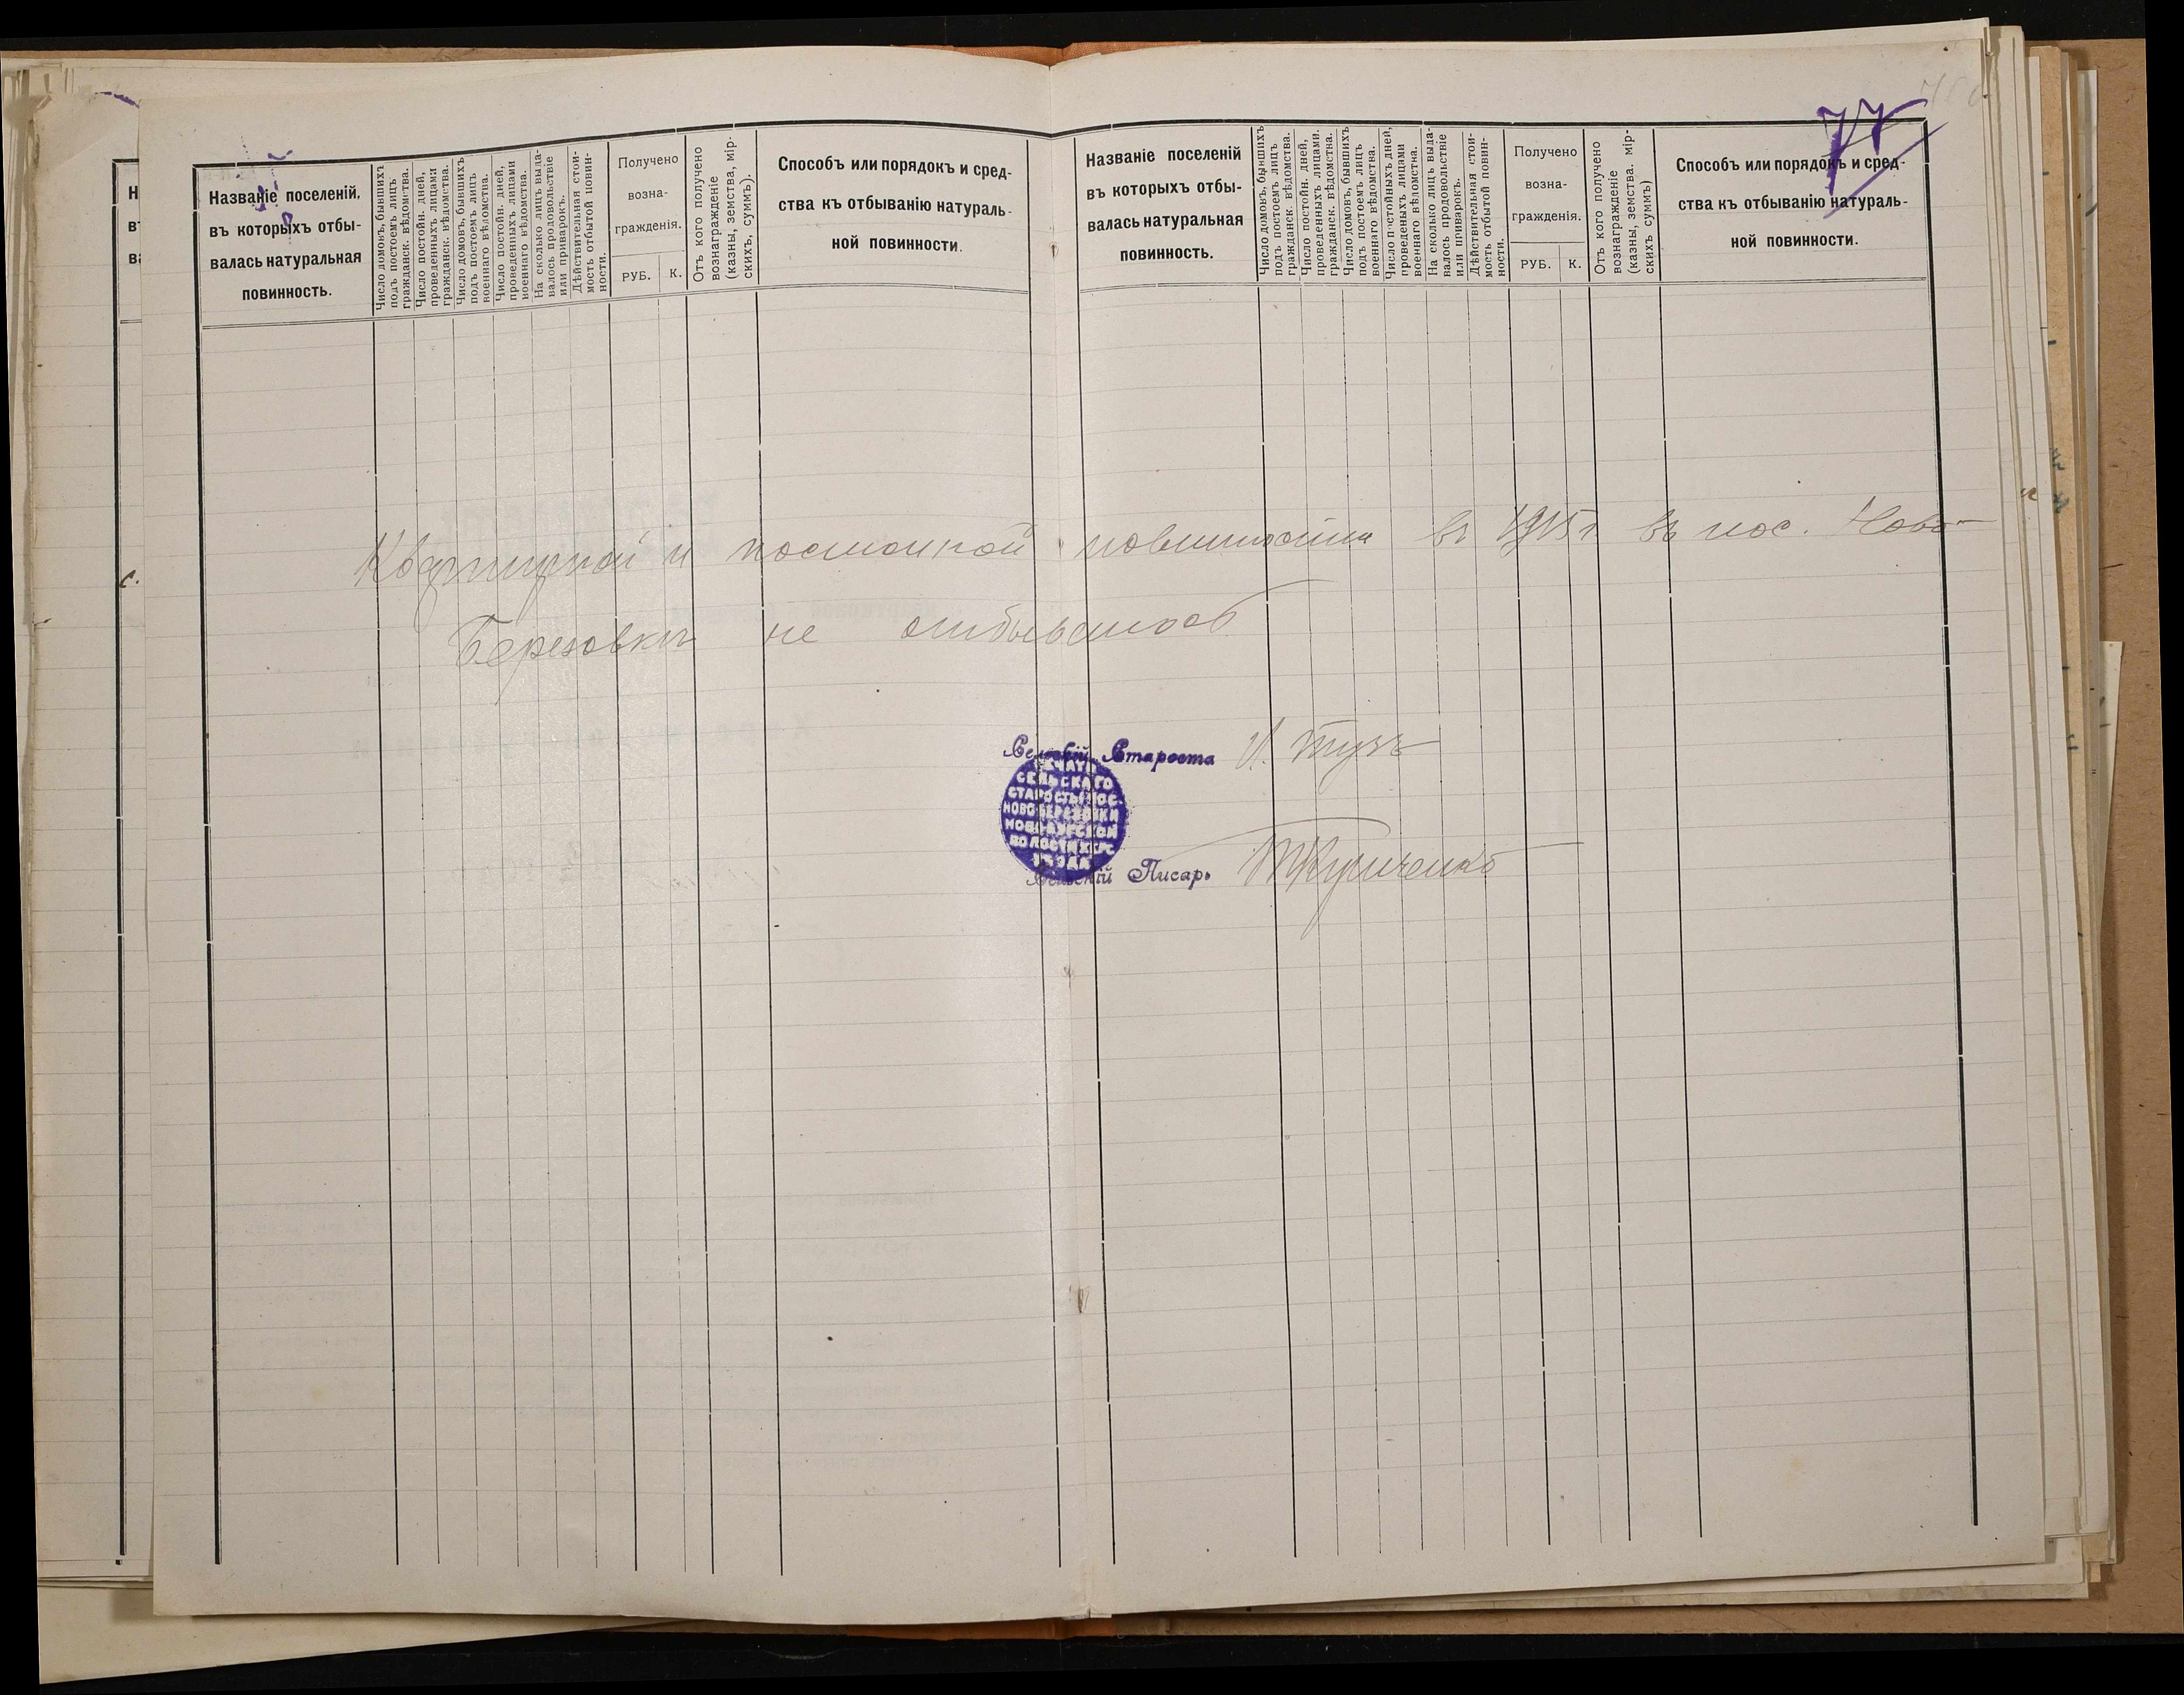 77
Названіе поселеній,
въ которыхъ отбы-
валась натуральная
повинность.
Число домовъ, бывшихъ
подъ постоемъ лицъ
гражданск. вѣдомства.
Число постойн. дней,
проведенныхъ лицами
гражданск. вѣдомства.
Число домовъ, бывшихъ
подъ постоем лицъ
военнаго вѣдомства.
Число постойн. дней,
проведенныхъ лицами
военнаго вѣдомства.
На сколько лицъ выда-
валось продовольствіе
или приварокъ.
Дѣйствительная стои-
мость отбытой повин-
ности.
Получено
возна-
гражденія.
РУБ. К.
Отъ кого получено
вознагражденіе
(казны, земства, мір-
скихъ, суммъ).
Способъ или порядокъ и сред-
ства къ отбыванію натураль-
ной повинности.
Названіе поселеній
въ которыхъ отбы-
валась натуральная
повинность.
Число домовъ, бывшихъ
подъ постоемъ лицъ
гражданск. вѣдомства.
Число постойн. дней,
проведенныхъ лицами.
гражданск. вѣдомства.
Число домовъ, бывшихъ
подъ постоемъ лицъ
военнаго вѣдомства.
Число постойныхъ дней,
проведеныхъ лицами
военнаго вѣдомства.
На сколько лицъ выда-
валось продовольствіе
или приварокъ.
Дѣйствительная стои-
мость отбытой повин-
ности.
Получено
возна-
гражденія.
РУБ. К.
Отъ кого получено
вознагражденіе
(казны, земства. мір-
скихъ суммъ)
Способъ или порядокъ и сред-
ства къ отбыванію натураль-
ной повинности.
Квартирной и постойной повинности въ 1915 г. въ пос. Ново-
Березовкѣ не отбывалось
Сельскій Староста И. Тузъ
ПЕЧАТЬ
СЕЛЬСКАГО
СТАРОСТЫ ПОС.
НОВО-БЕРЕЗОВКИ
ВОЛОСТИ ХЕРС.
УѢЗДА
Сельскій Писарь